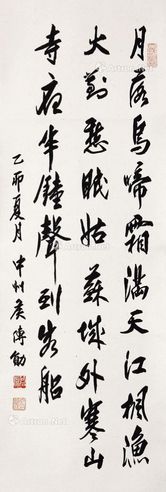 月落烏啼霜滿天江楓漁
火對愁眠姑蘇城外寒山
寺夜半鐘聲到客船
乙卯夏月中州侯傳勛